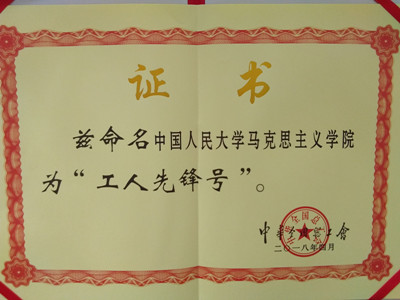 证书
兹命名中国人民大学马克思主义学院
为“工人先锋号”。
二〇一八年四月